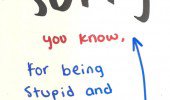 you know,
for being
stupid and